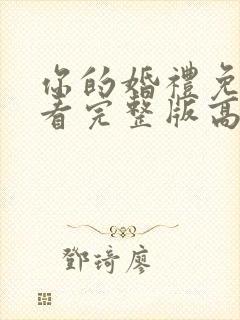 你的婚禮免
看完整版高
鄧琦廖